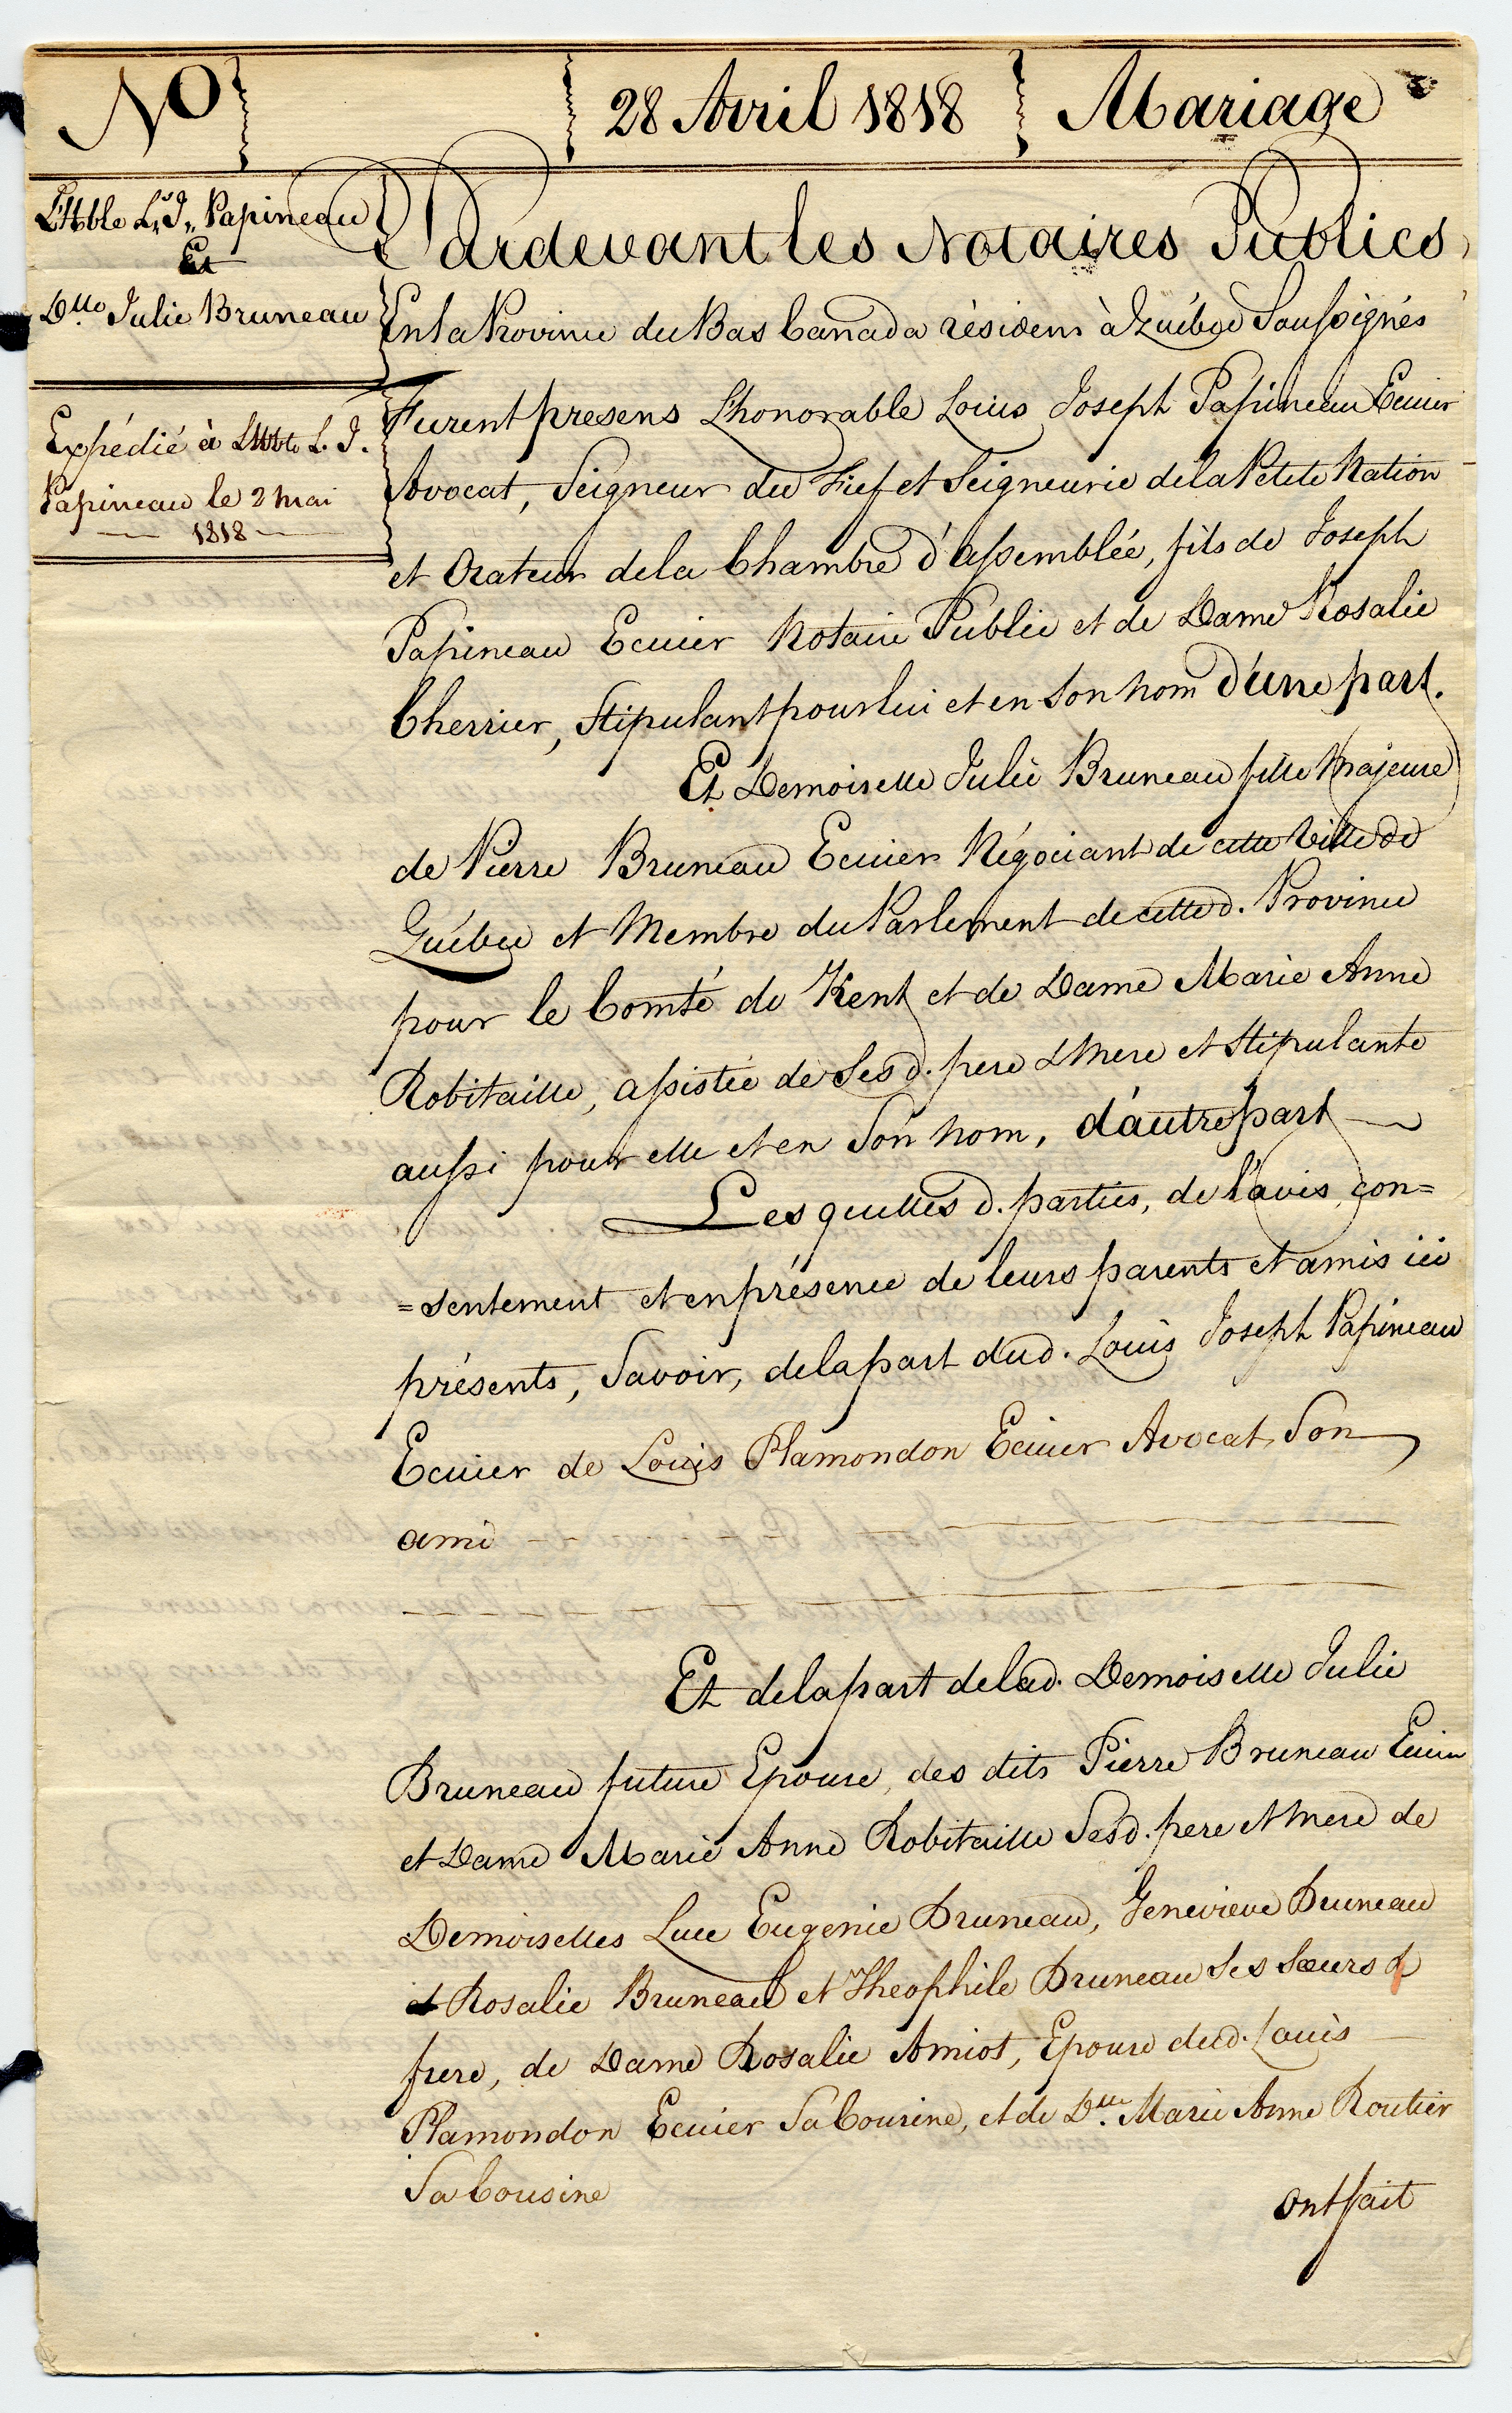 No 28 Avril 1818 Mariage
L'Hble Ls. J. Papineau
Et
Dlle Julie Bruneau
Expédié à L'Hble L. J.
Papineau le 2 mai
1818
Pardevant les Notaires Publics
En la Province du Bas Canada résidens à Québec Soussignés
Furent presens L'honorable Louis Joseph Papineau Ecuier
Avocat, Seigneur du Fief et Seigneurie de la Petite Nation
et Orateur de la Chambre d'assemblée, fils de Joseph
Papineau Ecuier Notaire Public et de Dame Rosalie
Cherrier, Stipulant pour lui et en Son nom d'une part.
Et Demoiselle Julie Bruneau fille Majeure
de Pierre Bruneau Ecuier Négociant de cette Ville de
Québec et Membre du Parlement de cette d. Province
pour le Comté de Kent et de Dame Marie Anne
Robitaille, assistée de Ses d. pere & Mere et Stipulante
aussi pour elle et en Son nom, d'autre part
Lesquelles d. parties, de l'avis, con=
=sentement et en présence de leurs parents et amis ici
présents, Savoir, de la part dud. Louis Joseph Papineau
Ecuier de Louis Plamondon Ecuier Avocat, Son
ami
Et de la part de lad. Demoiselle Julie
Bruneau future Epouse, des dits Pierre Bruneau Ecuier
et Dame Marie Anne Robitaille Ses d. pere et Mere de
Demoiselles Luce Eugenie Bruneau, Genevieve Bruneau
et Rosalie Bruneau et Theophile Bruneau Ses Sœurs &
frere, de Dame Rosalie Amiot, Epouse dud. Louis
Plamondon Ecuier Sa Cousine, et de Dlle Marie Anne Routier
Sa Cousine
ont fait